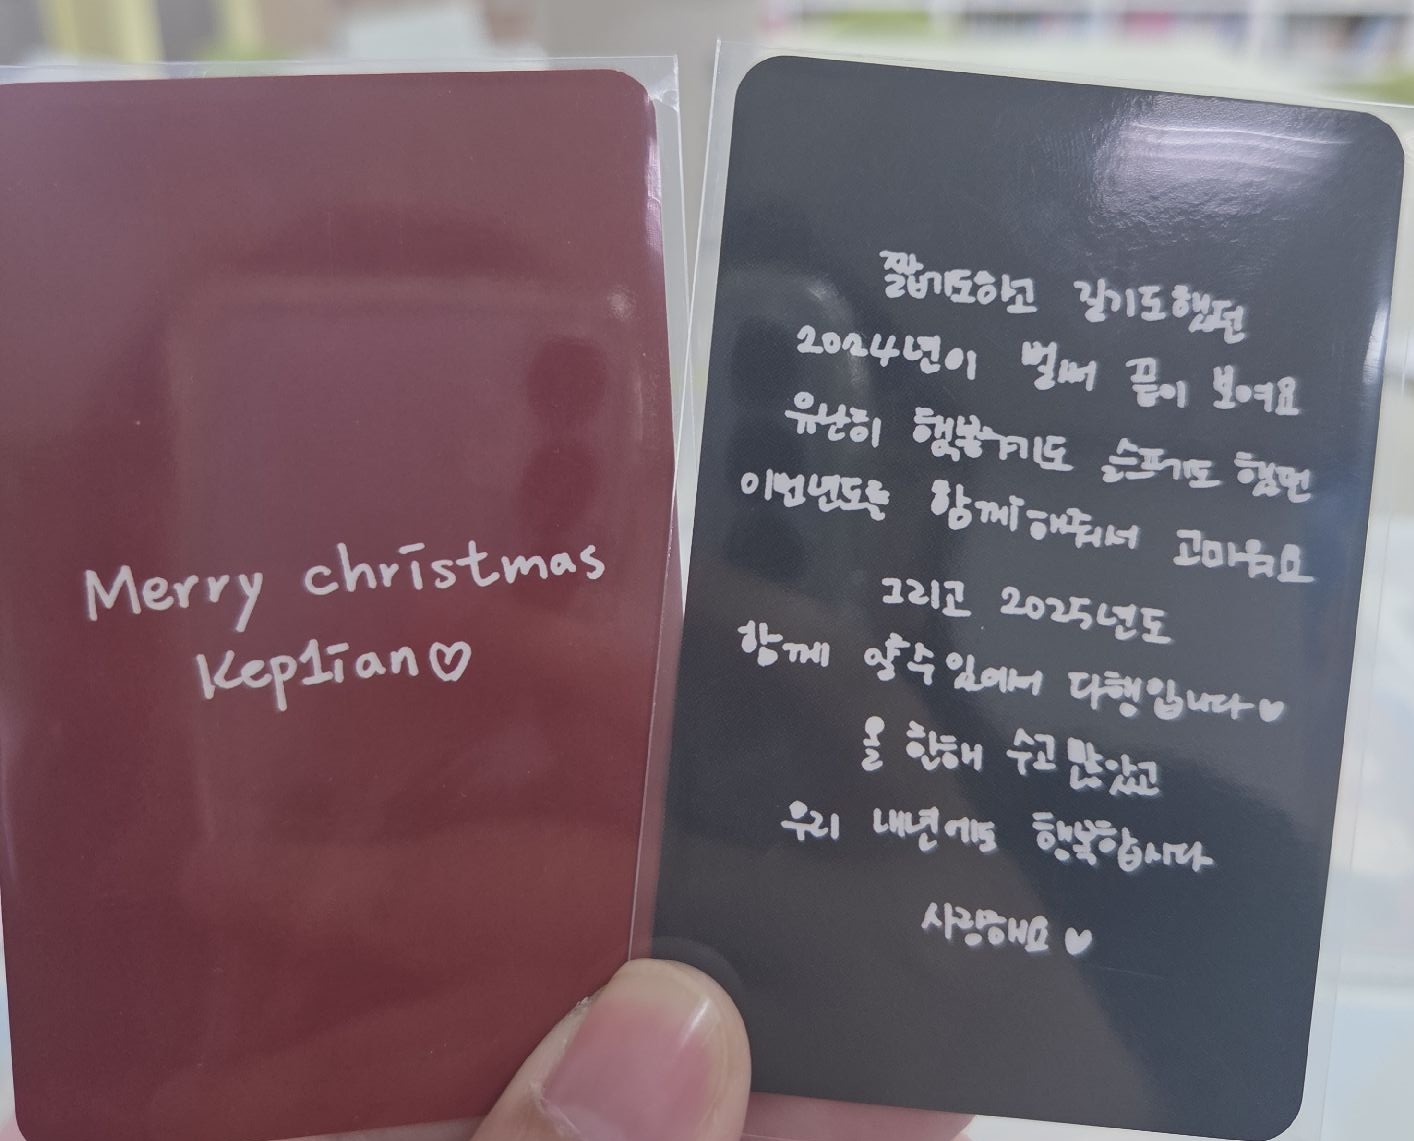 Merry christmas
Kep1ian♡
짧기도하고 길기도했던
2024년이 벌써 끝이 보여요
유난히 행복하기도 슬프기도 했던
이번년도를 함께해줘서 고마워요
그리고 2025년도
함께 할수있에서 다행입니다♥
올 한해 수고많았고
우리 내년에도 행복합시다
사랑해요♥